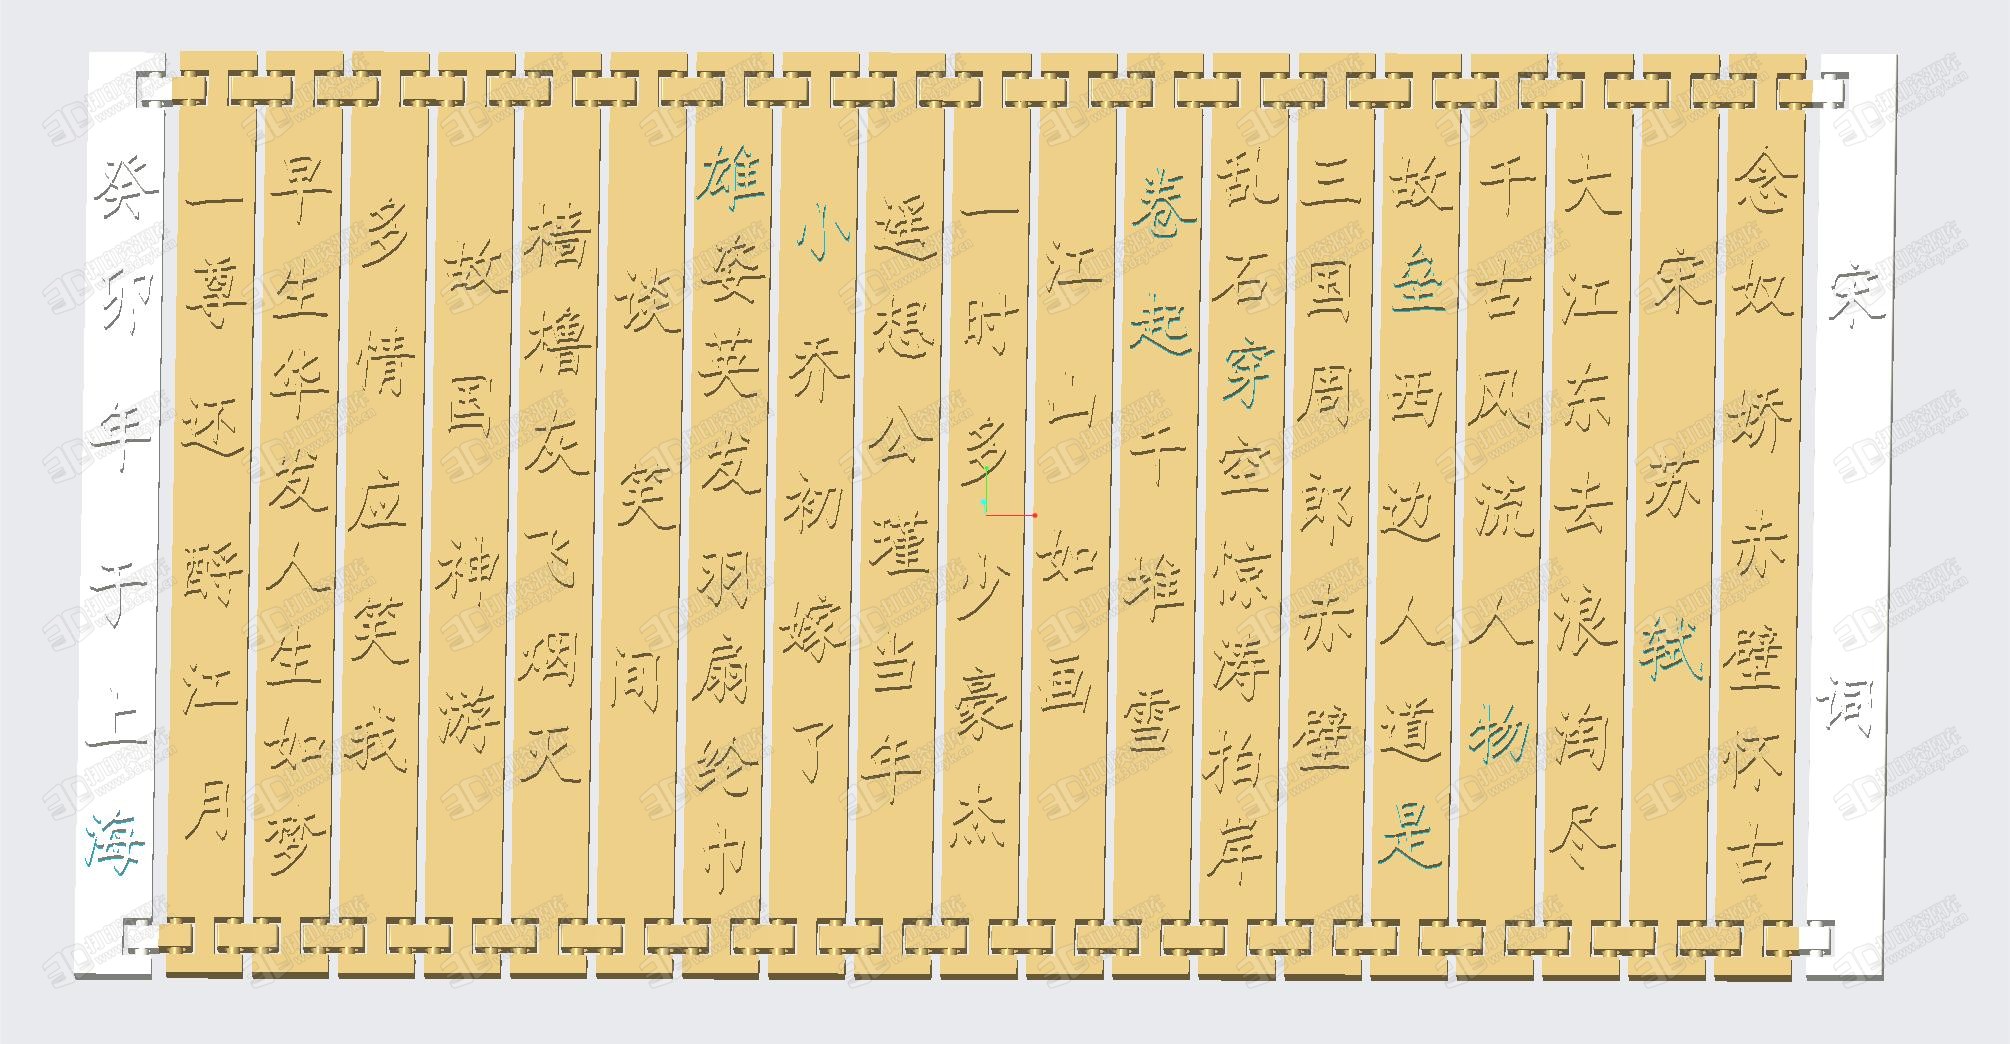 宋词
念奴娇赤壁怀古
宋苏轼
大江东去浪淘尽
千古风流人物
故垒西边人道是
三国周郎赤壁
乱石穿空惊涛拍岸
卷起千堆雪
江山如画
一时多少豪杰
遥想公瑾当年
小乔初嫁了
雄姿英发羽扇纶巾
谈笑间
樯橹灰飞烟灭
故国神游
多情应笑我
早生华发人生如梦
一尊还酹江月
癸卯年于上海